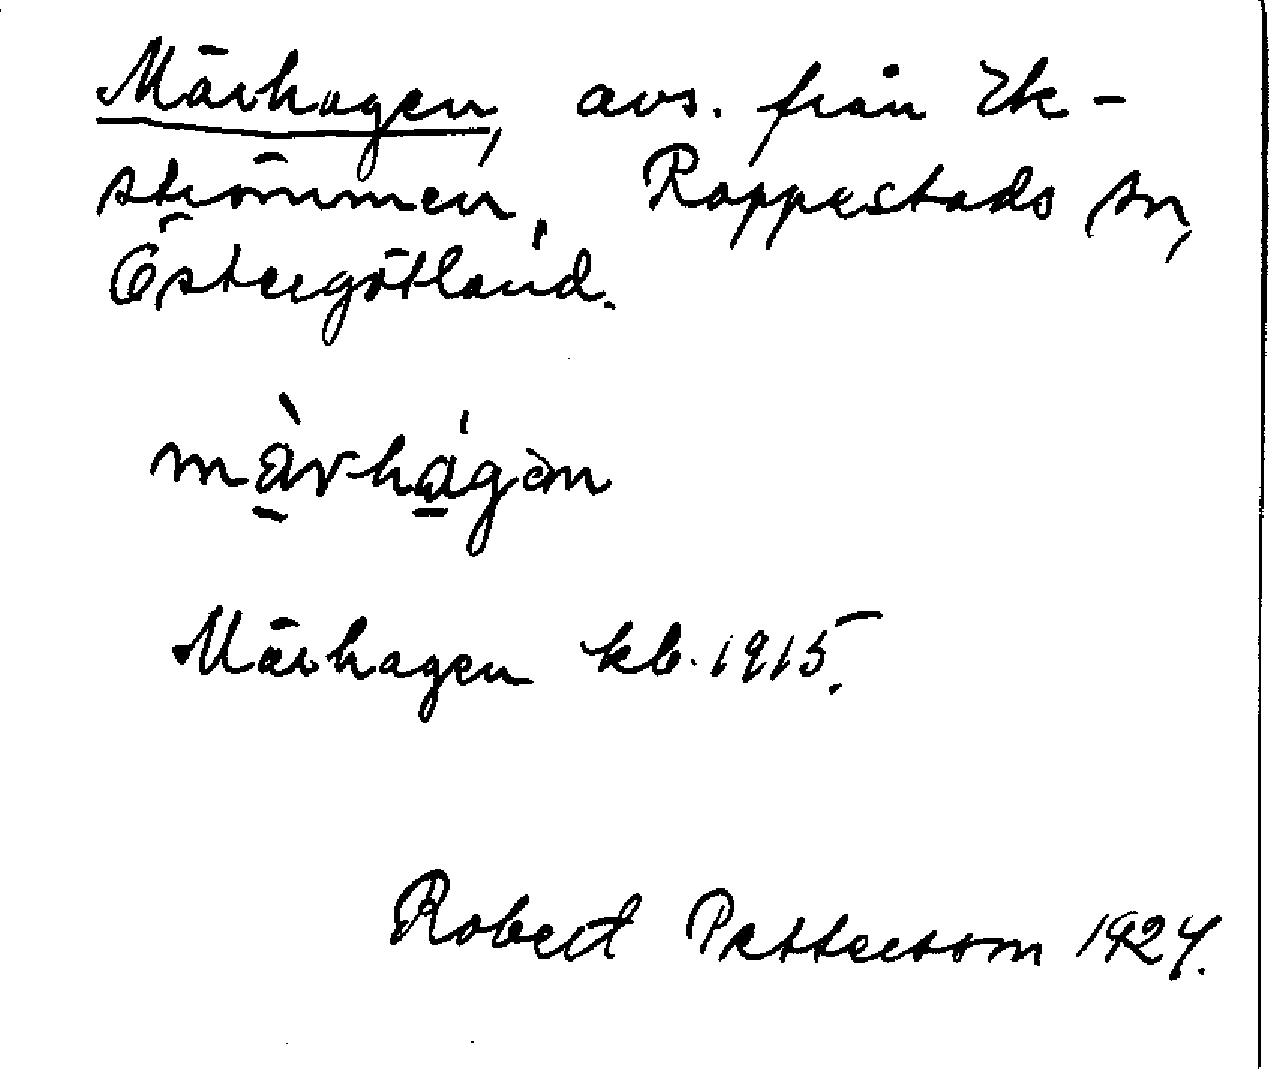 Mårhagen, avs. från Ek-
strömmen, Rappestads sn,
Östergötland.
màrhágən
Mårhagen kb. 1915.
Robert Pettersson 1924.